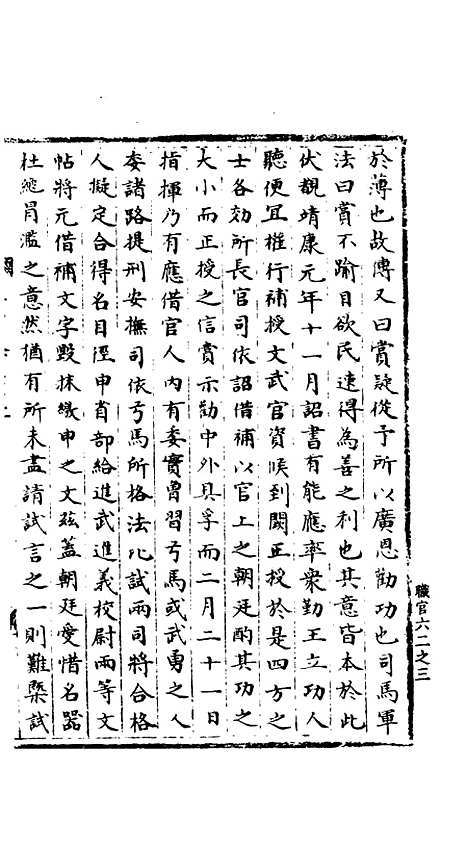 職官六二之三
於薄也故傳又曰賞疑從予所以廣恩勸功也司馬軍
法曰賞不踰日欲民速得為善之利也其意皆本於此
伏覩靖康元年十一月詔書有能應率衆勤王立功人
聽便宜權行補授文武官資候到闕正授於是四方之
士各効所長官司依詔借補以官上之朝廷酌其功之
大小而正授之信賞示勸中外具孚而二月二十一日
指揮乃有應借官人內有委實曾習弓馬或武勇之人
委諸路提刑安撫司依弓馬所格法比試兩司將合格
人擬定合得名目徑申省部給進武進義校尉兩等文
帖將元借補文字毀抹繳申之文茲蓋朝廷愛惜名器
杜絕冒濫之意然猶有所未盡請試言之一則難槩試